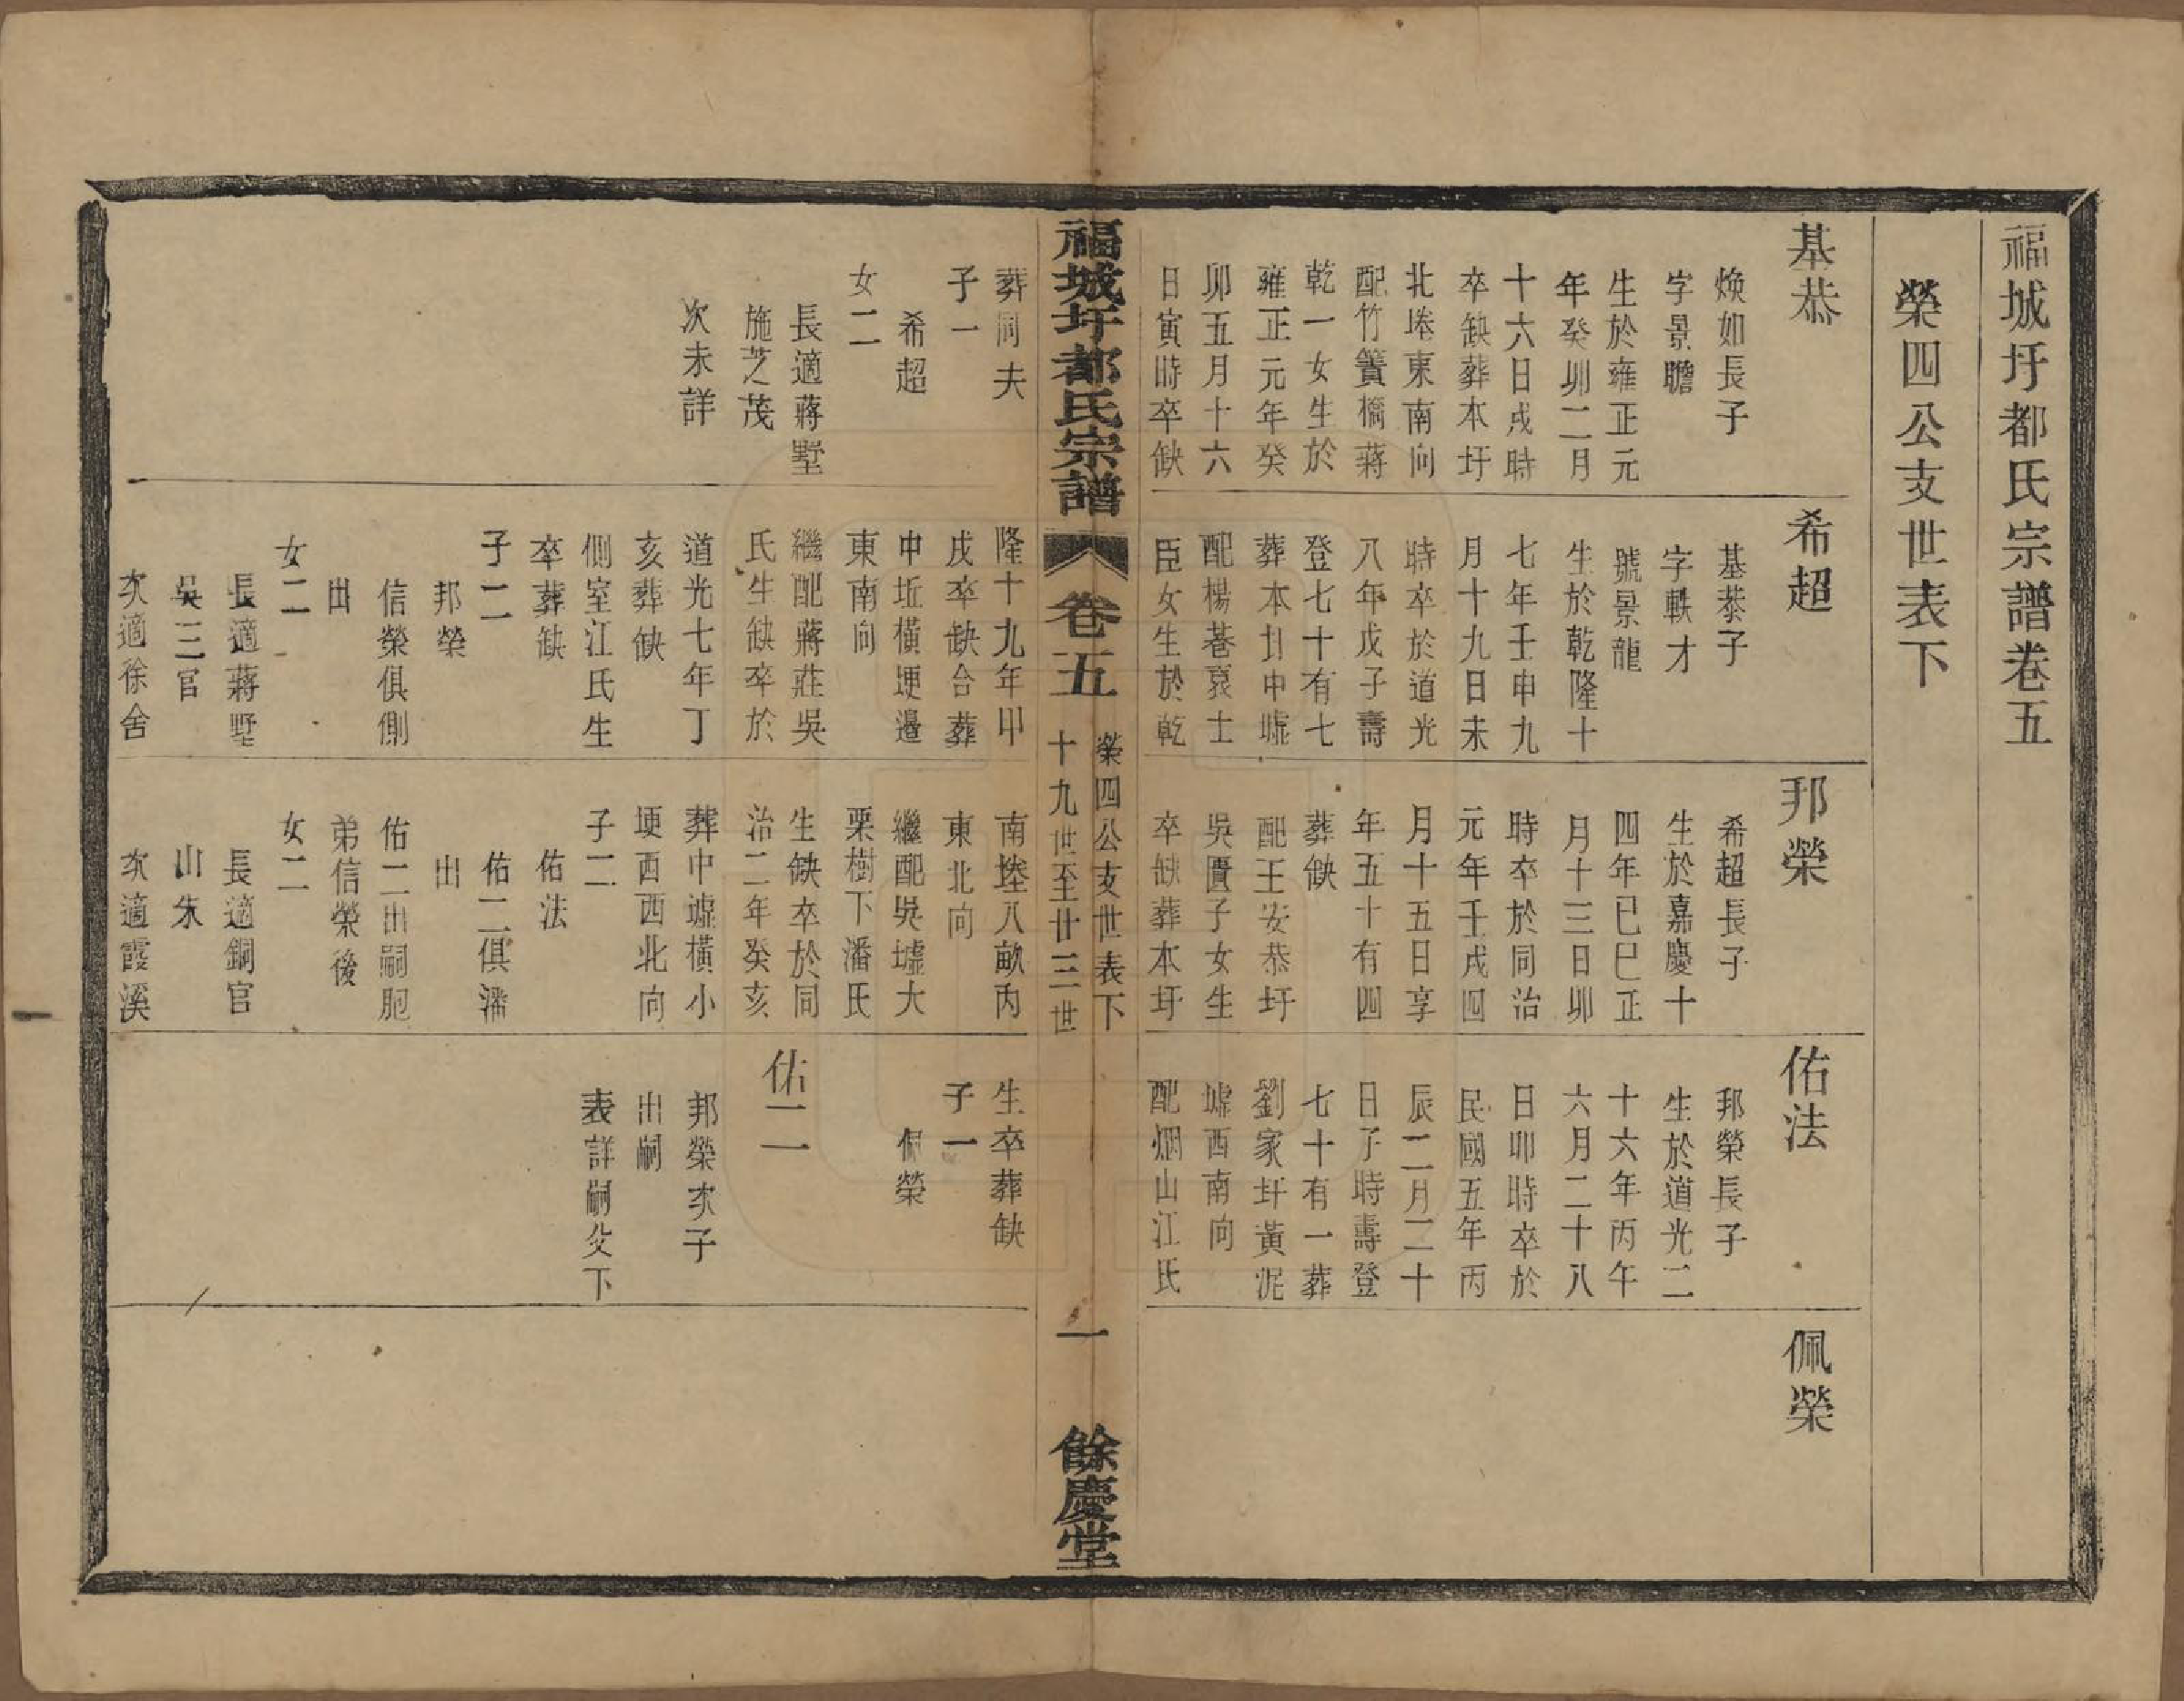 福城圩都氏宗譜卷五
榮四公支世表下
基恭
煥如長子
字景瞻
生於雍正元
年癸卯二月
十六日戌時
卒缺葬本圩
北埢東南向
配竹簣橋蔣
乾一女生於
雍正元年癸
卯五月十六
日寅時卒缺
葬同夫
子一
希超
女二
長適蔣墅
施芝茂
次未詳
希超
基恭子
字軼才
號景龍
生於乾隆十
七年壬申九
月十九日未
時卒於道光
八年戊子壽
登七十有七
葬本圩中墟
配楊巷袁士
臣女生於乾
隆十九年甲
戌卒缺合葬
中坵橫埂邉
東南向
繼配蔣莊吳
氏生缺卒於
道光七年丁
亥葬缺
側室江氏生
卒葬缺
子二
邦榮
信榮俱側
出
女二
長適蔣墅
吳三官
次適徐舍
邦榮
希超長子
生於嘉慶十
四年己巳正
月十三日卯
時卒於同治
元年壬戌四
月十五日享
年五十有四
葬缺
配王安恭圩
吳匱子女生
卒缺葬本圩
南埢八畝丙
東北向
繼配吳墟大
栗樹下潘氏
生缺卒於同
治二年癸亥
葬中墟橫小
埂西西北向
子二
佑法
佑二俱潘
出
佑二出嗣胞
弟信榮後
女二
長適銅官
山朱
次適霞溪
佑法
邦榮長子
生於道光二
十六年丙午
六月二十八
日卯時卒於
民國五年丙
辰二月二十
日子時壽登
七十有一葬
劉家圩黃泥
墟西南向
配烟山江氏
生卒葬缺
子一
佩榮
佑二
邦榮次子
出嗣
表詳嗣父下
佩榮
福城圩都氏宗譜
卷五
榮四公支世表下
十九世至廿三世
一
餘慶堂